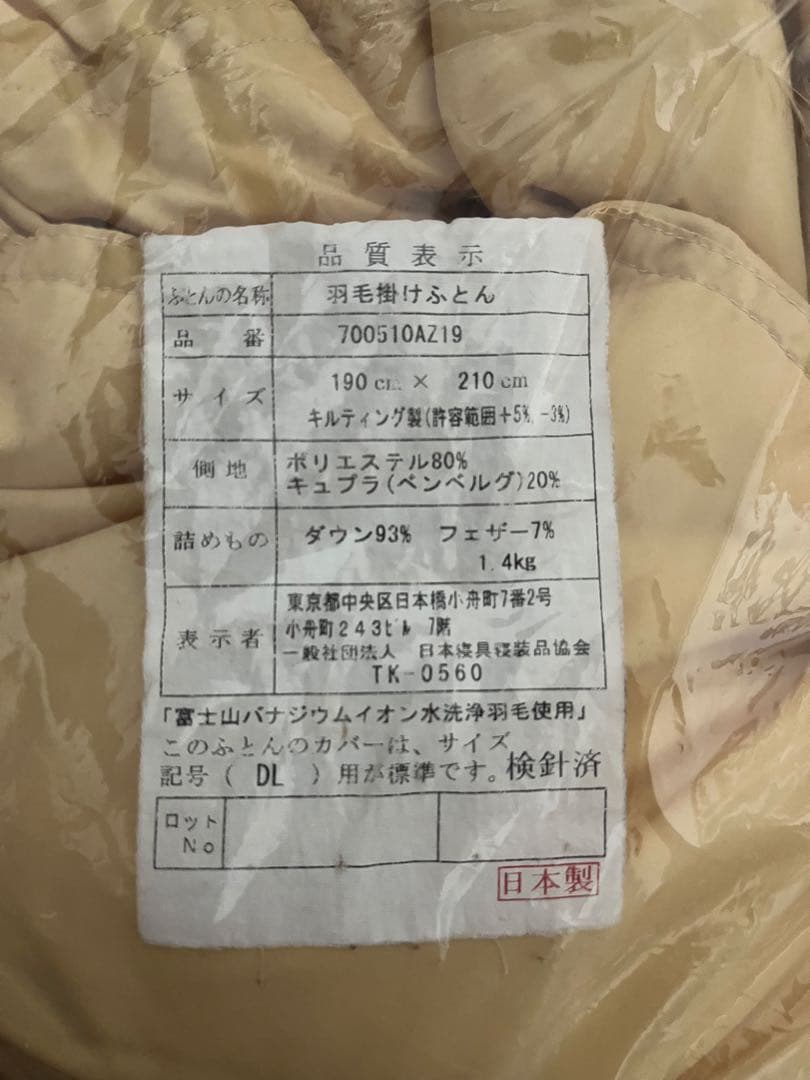 品質表示
ふとんの名称 羽毛掛けふとん
品番 700510AZ19
サイズ 190cm × 210cm
キルティング製(許容範囲+5%, -3%)
側地 ポリエステル80%
キュプラ(ベンベルグ)20%
詰めもの ダウン93% フェザー7%
1.4kg
表示者 東京都中央区日本橋小舟町7番2号
小舟町243ビル 7階
一般社団法人 日本寝具寝装品協会
TK-0560
「富士山バナジウムイオン水洗浄羽毛使用」
このふとんのカバーは、サイズ
記号( DL )用が標準です。検針済
ロット
No
日本製